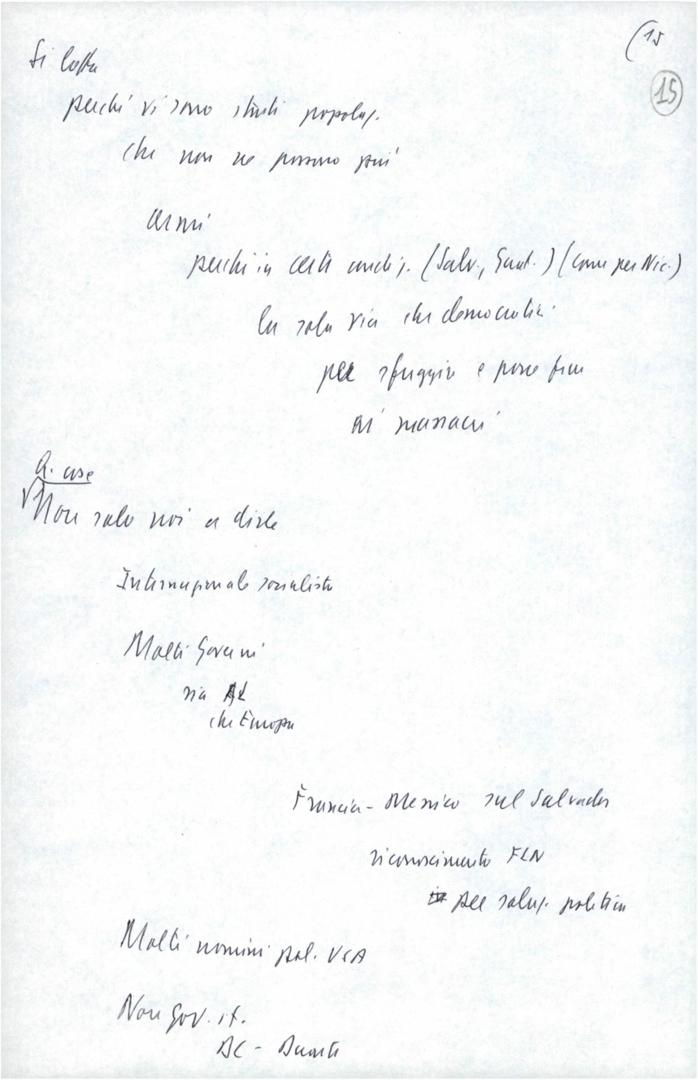 (15
15
Si lotta
perché vi sono stati popolaz.
che non ne possono più
armi
perché in certi condiz. (Salv., Guat.) (come per Nic.)
la sola via che democratici
per sfuggire e porre fine
ai massacri
Q. cose
Non solo noi a dirle
Internazionale socialista
Molti Governi
sia AL
che Europa
Francia - Messico sul Salvador
riconoscimento FLN
per soluz. politica
Molti uomini pol. USA
Non Gov. it.
DC - Duarte